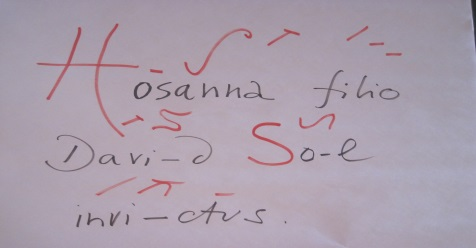 Hosanna filio
Davi-d So-l
invi-ctus.